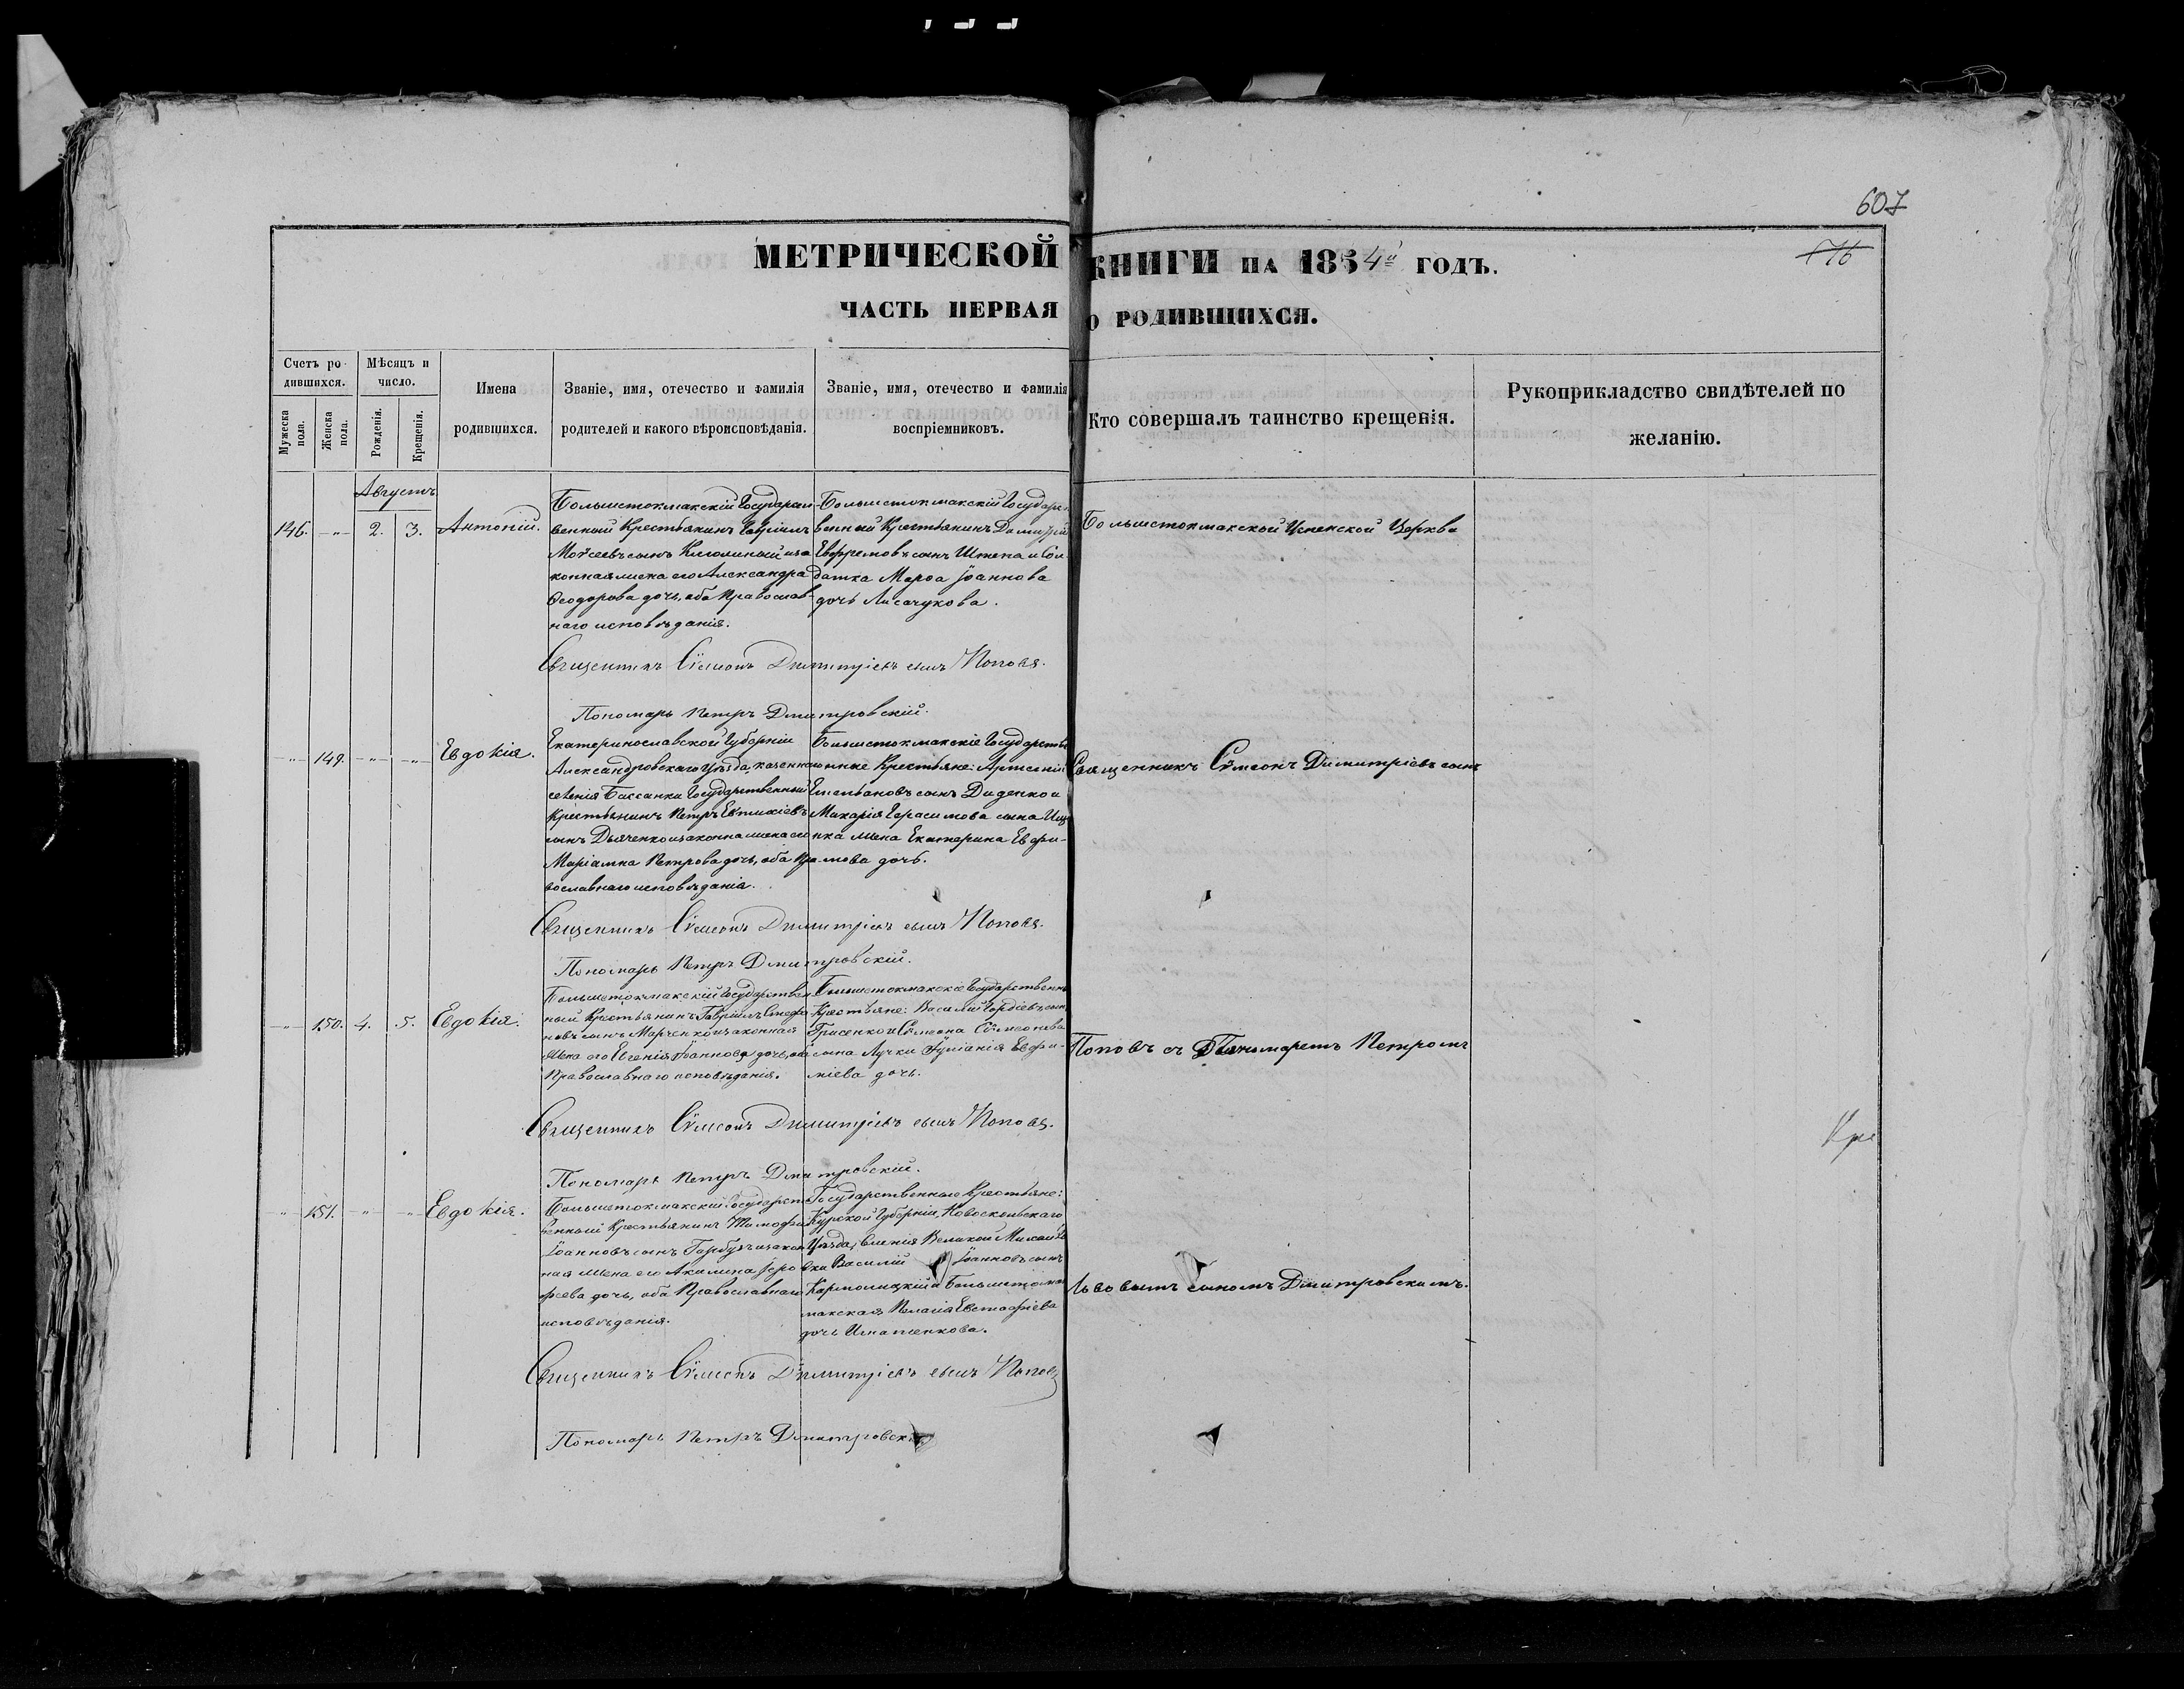 607
516
МЕТРИЧЕСКОЙ КНИГИ НА 1854й ГОДЪ.
ЧАСТЬ ПЕРВАЯ О РОДИВШИХСЯ.
Счетъ ро-
дившихся.
Мужеска
пола.
Женска
пола.
Мѣсяцъ и
число.
Рожденія.
Крещенія.
Имена
родившихся.
Званіе, имя, отечество и фамилія
родителей и какого вѣроисповѣданія.
Званіе, имя, отечество и фамилія
воспріемниковъ.
Кто совершалъ таинство крещенія.
Рукоприкладство свидѣтелей по
желанію.
Августъ
146. -"- 2. 3. Антоній.
Большетокмакскій Государст-
венный Крестьянинъ Гавріилъ
Мойсеевъ сынъ и за-
конная жена его Александра
Ѳеодорова дочь, оба Православ-
наго исповѣданія.
Большетокмакскій Государст
венный Крестьянинъ Димитрій
Евфремовъ сынъ Штепа и Сол-
датка Марѳа Іоаннова
дочь Лисачукова.
Священникъ Сѵмеонъ Димитріевъ сынъ Поповъ.
Пономарь Петръ Дмитровскій.
-"- 149. -"- -"- Евдокія.
Екатеринославской Губерніи
Александровскаго Уѣзда, казенна
селенія Басанки Государственный
Крестьянинъ Петръ Евтихіевъ
сынъ Дьяченко и законна жена его
Маріамна Петрова дочь, оба Пра
вославнаго исповѣданія.
Большетокмакскіе Государстве
нные Крестьяне: Арсеній
Емельяновъ сынъ Диденко и
Макарія Герасимова сына Ищ
нка жена Екатерина Евфи-
мова дочь.
Священникъ Сѵмеонъ Димитріевъ сынъ Поповъ.
Пономарь Петръ Дмитровскій.
-"- 150. 4. 5. Евдокія.
Большетокмакскій Государствен
ный Крестьянинъ Гавріилъ Стефа
новъ сынъ Марченко и законная
жена его Евгенія Іоаннова дочь, оба
Православнаго исповѣданія.
Большетокмакскіе Государственн
Крестьяне: Василій Гордіевъ сынъ
Грисенко и Сѵмеона Сѵмеонова
сына Лучки Іуліанія Евфи-
міева дочь.
Священникъ Сѵмеонъ Димитріевъ сынъ Поповъ.
Пономарь Петръ Дмитровскій.
-"- 151. -"- -"- Евдокія.
Большетокмакскій Государст
венный Крестьянинъ Тимофей
Іоанновъ сынъ Гарбузъ и закон
ная жена его Акилина
феева дочь, оба Православнаго
исповѣданія.
Государственные Крестьяне:
Курской Губерніи, Новоскольскаго
Уѣзда, Селенія Великой Михайло
вки Василій Іоанновъ сынъ
и Большеток
макская Пелагія Евстафіева
дочь Игнатенкова.
Священникъ Сѵмеонъ Димитріевъ сынъ Поповъ
Пономарь Петръ Дмитровскій.
Большетокмакской Успенской Церкви
Священникъ Сѵмеонъ Димитріевъ сынъ
Поповъ съ Пономаремъ Петромъ
Львовымъ сыномъ Дмитровскимъ.
Кре